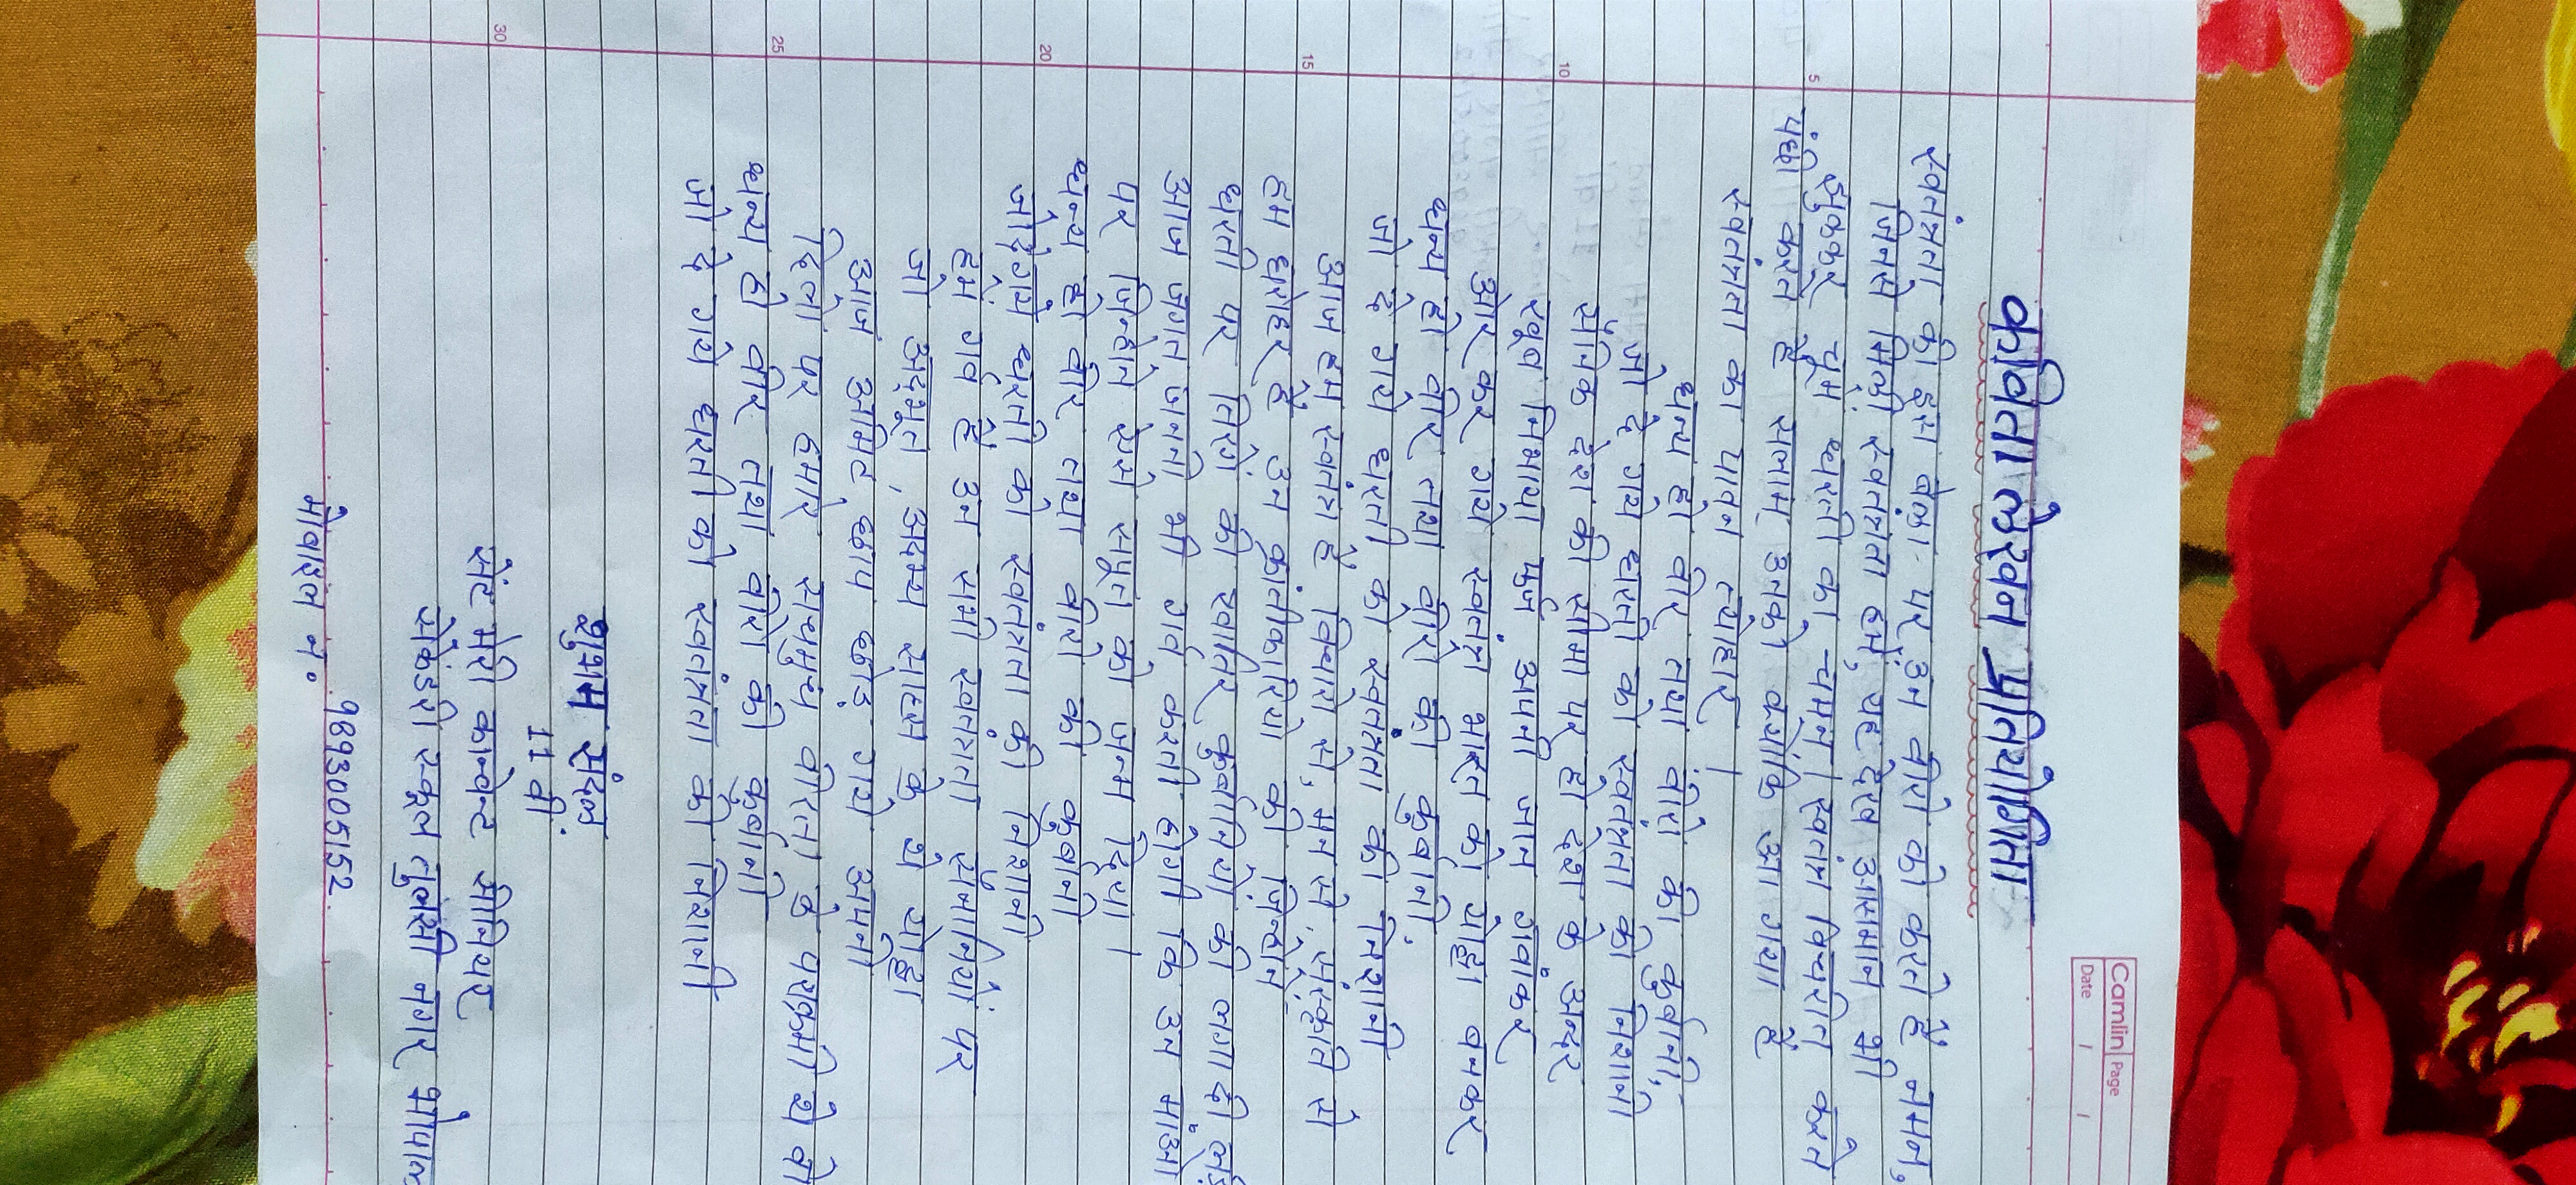 Camlin Page
Date / /
कविता लेखन प्रतियोगिता
स्वतंत्रता की इस बेला पर उन वीरो को करते हैं नमन,
जिनसे मिली स्वतंत्रता हमें, यह देख आसमान भी
झुककर चूम धरती को चमन। स्वतंत्र विचरित करते
पंछी करते हैं सलाम उनको क्योंकि आ गया है
स्वतंत्रता का पावन त्योहार।
धन्य हो वीर तथा वीरों की कुर्बानी,
5
जो दे गये धरती को स्वतंत्रता की निशानी
सैनिक देश की सीमा पर हो देश के अन्दर
खूब निभाया फर्ज अपनी जान गवांकर
ओर कर गये स्वतंत्र भारत को योद्धा बनकर
धन्य हो वीर तथा वीरो की कुर्बानी,
10
जो दे गये धरती को स्वतंत्रता की निशानी
आज हम स्वतंत्र हैं विचारो से, मन से, संस्कृति से
हम धरोहर हैं उन क्रांतीकारियो की जिन्होंने
धरती पर तिरंगे की खातिर कुर्बानियों की लगा दी लड़ी
आज जगत जननी भी गर्व करती होगी कि उन माँओ
15
पर जिन्होने ऐसे सपूतो को जन्म दिया।
धन्य हो वीर तथा वीरो की कुर्बानी
जो दे गये धरती को स्वतंत्रता की निशानी
हमें गर्व हैं उन सभी स्वतंत्रता सेनानियों पर
जो अद्भूत, अदम्य साहस के थे योद्धा
20
आज अमिट छाप छोड़ गये अपनी
दिलो पर हमारे सचमुच वीरता के पराक्रमी थे वो
धन्य हो वीर तथा वीरो की कुर्बानी
जो दे गये धरती को स्वतंत्रता की निशानी
25
शुभम संदल
11 वी.
सेंट मेरी कान्वेन्ट सीनियर
सेकेंडरी स्कूल तुलसी नगर भोपाल
30
मोबाइल न. 9893005152